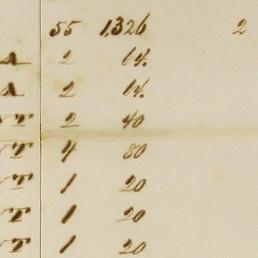 55 1,326 2
A 2 14.
A 2 14.
T 2 40
T 4 80
T 1 20
T 1 20
T 1 20